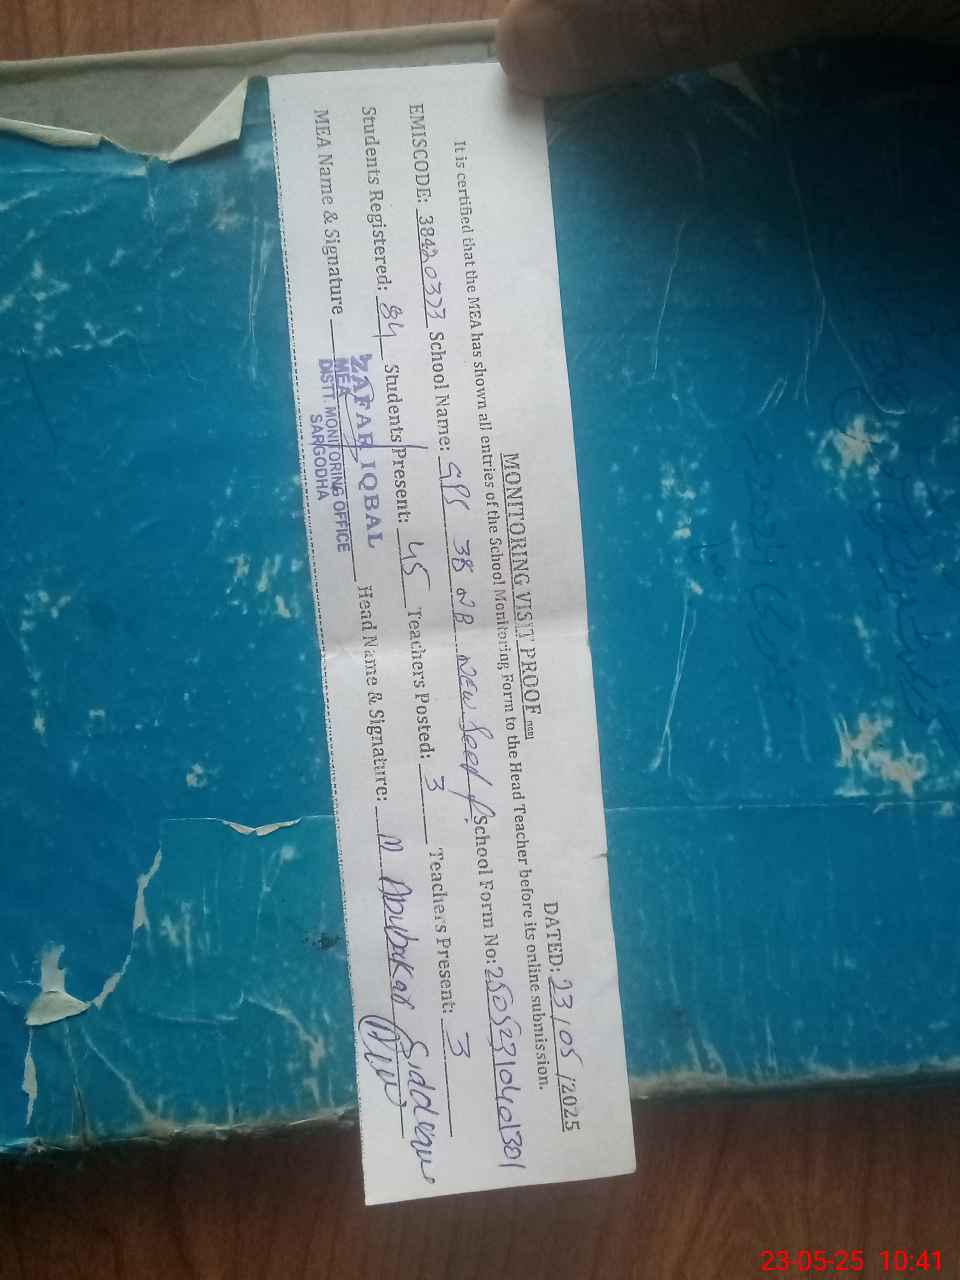 MONITORING VISIT PROOF
DATED: 23/05/2025
It is certified that the MEA has shown all entries of the School Monitoring Form to the Head Teacher before its online submission.
EMISCODE: 38420373 School Name: GPS 38 NB New School Form No: 25052310401301
Students Registered: 84 Students Present: 45 Teachers Posted: 3 Teachers Present: 3
MEA Name & Signature Head Name & Signature: M Abubakar
ZAFAR IQBAL
MEA
DISTT. MONITORING OFFICE
SARGODHA
23-05-25 10:41